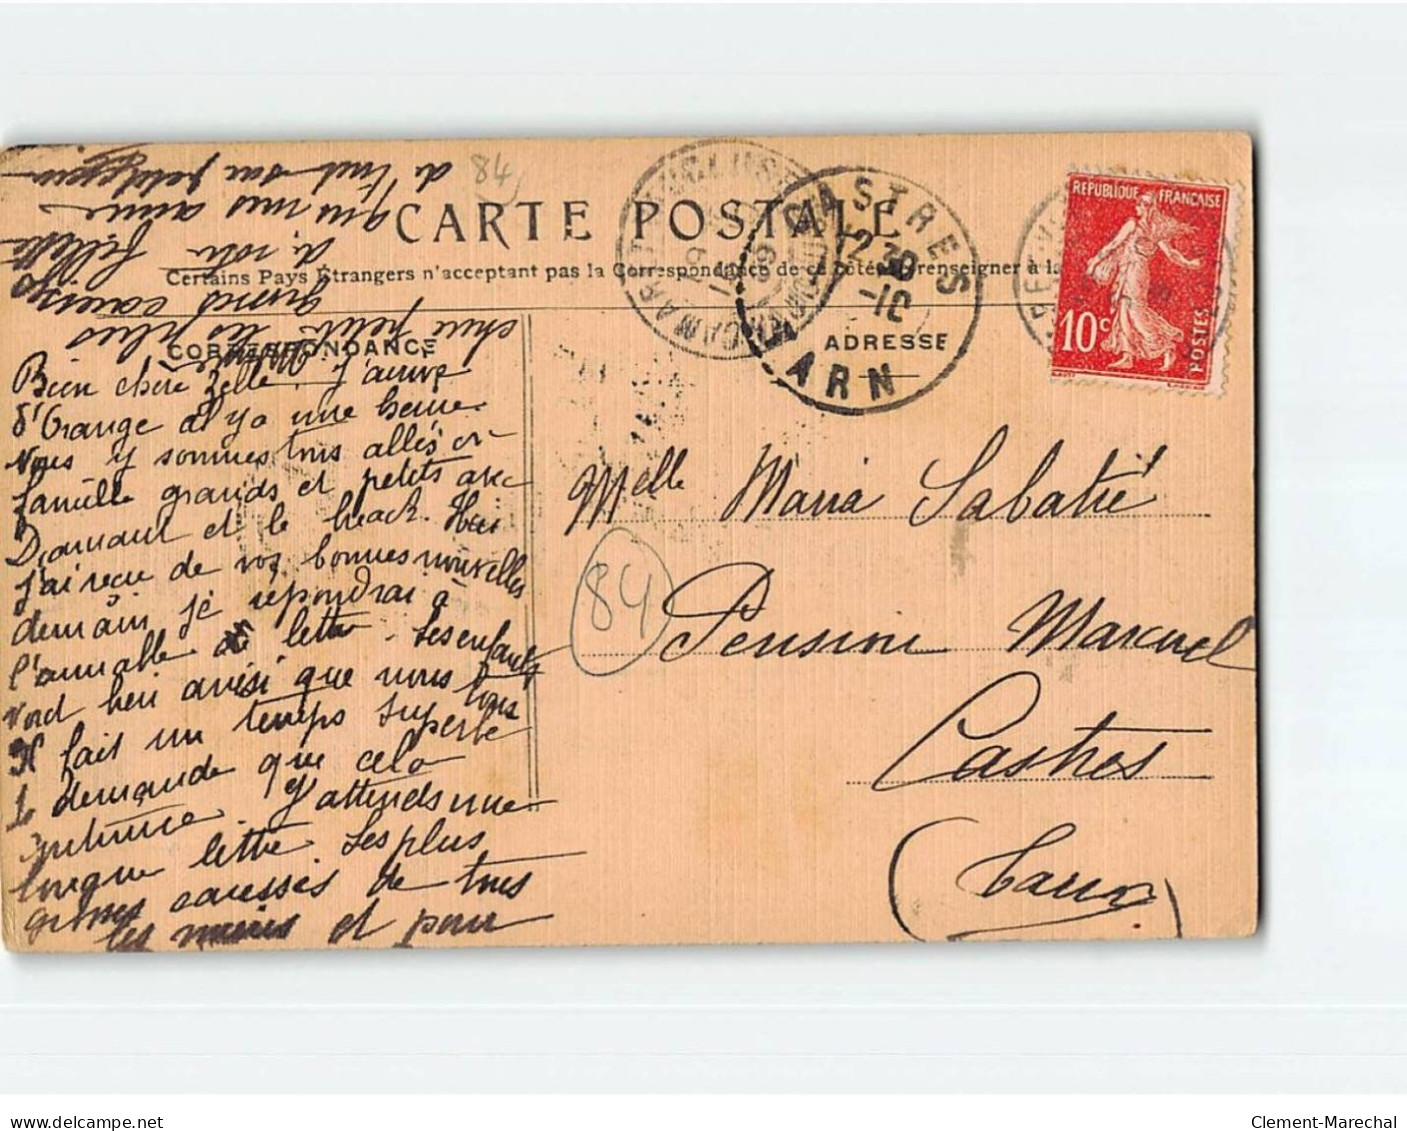 CARTE POSTALE
Certains Pays Étrangers n'acceptant pas la Correspondance de ce côté, se renseigner à la
CORRESPONDANCE
ADRESSE
84
CASTRES
TARN
12 30
-10
CAMARET
REPUBLIQUE FRANÇAISE
10c
POSTES
Bien chère Zelle. J'arrive
d'Orange il y a une heure
Nous y sommes tous allés en
famille grands et petits avec
Diamant et le break. Hier
j'ai reçu de vos bonnes nouvelles
demain je répondrai à
l'aimable lettre. Les enfants
vont bien ainsi que nous tous
Il fait un temps superbe
demande que cela
continue J'attends une
longue lettre. Les plus
grosses caresses de tous
les miens et pour
chère petite les plus
grand caresses
de votre fillette
qui vous aime
Melle Maria Sabatié
84
Pension Maruel
Castres
(Tarn)
Clement-Marechal